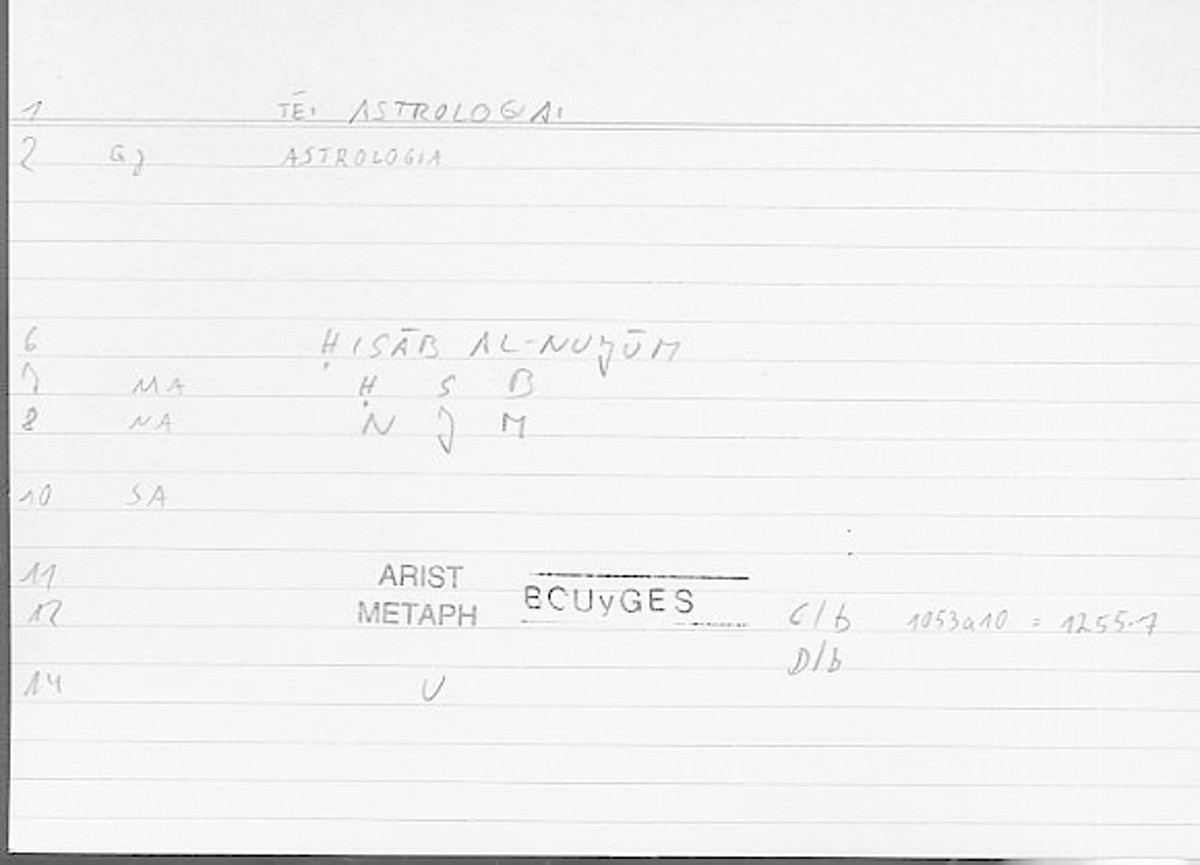 1 TĒI ASTROLOGIAI
2 Gj ASTROLOGIA
6 ḤISĀB AL-NUJŪM
7 MA Ḥ S B
8 NA N J M
10 SA
11 ARIST
12 METAPH BOUyGES C/b 1053a10 = 1255.7
D/b
14 U